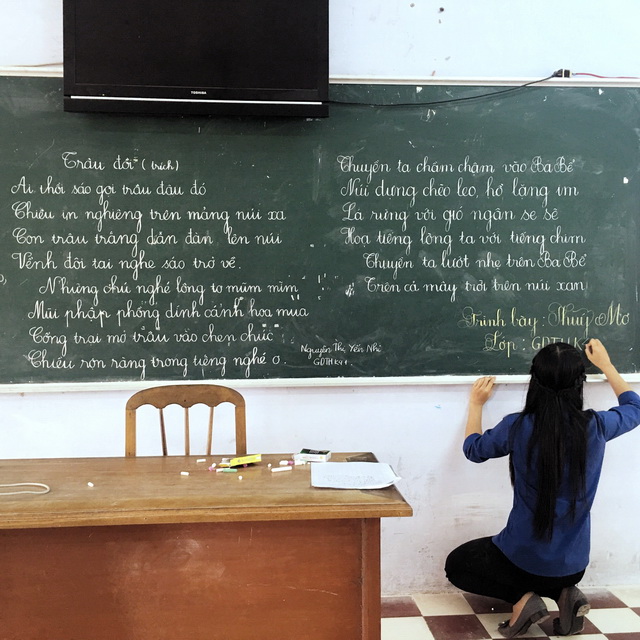 TOSHIBA
Trâu đồi (trích)
Ai thổi sáo gọi trâu đâu đó
Chiều in nghiêng trên mảng núi xa
Con trâu trắng dẫn đàn lên núi
Vểnh đôi tai nghe sáo trở về.
Những chú nghé lông tơ mũm mĩm
Mũi phập phồng dính cánh hoa mua
Cổng trại mở trâu vào chen chúc
Chiều rộn ràng trong tiếng nghé ơ.
Nguyễn Thị Yến Nhi
GDTH K41.
Thuyền ta chầm chậm vào Ba Bể
Núi dựng cheo leo, hồ lặng im
Lá rừng với gió ngân se sẽ
Hoạ tiếng lòng ta với tiếng chim
Thuyền ta lướt nhẹ trên Ba Bể
Trên cả mây trời trên núi xanh
Trình bày: Thuỳ Mơ
Lớp: GDTH K